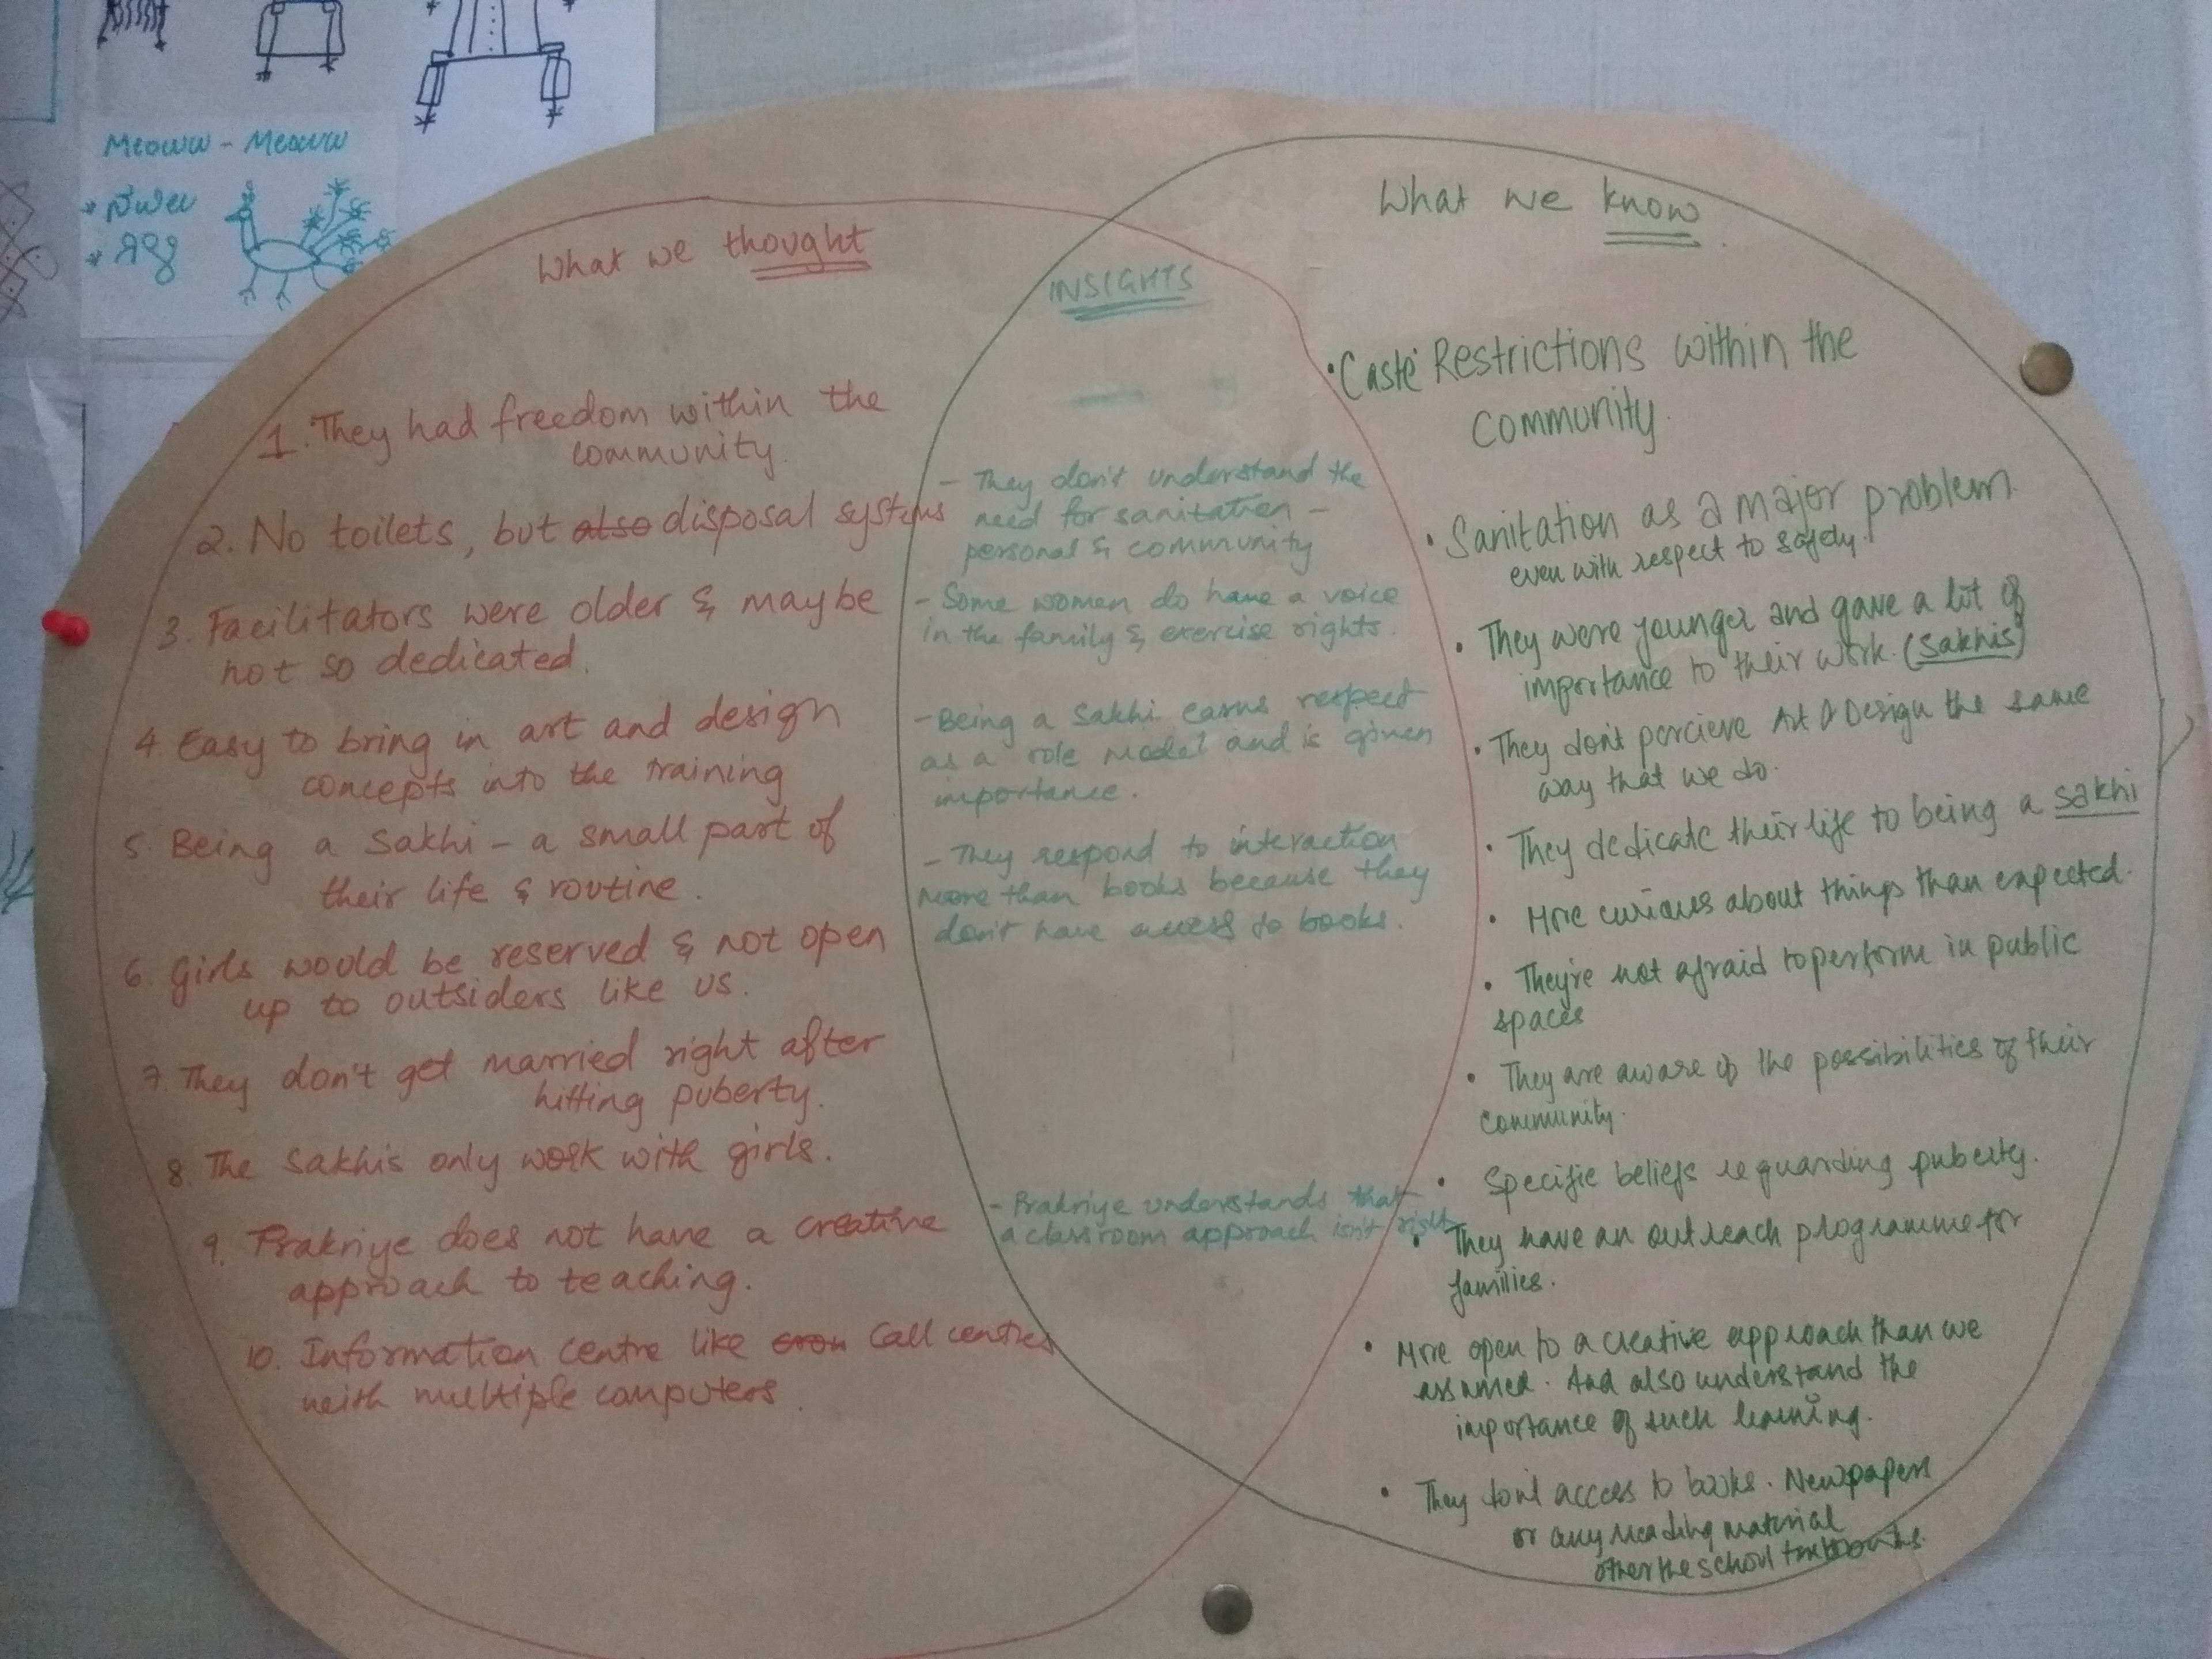 Meoww - Meoww
What we thought
1. They had freedom within the
community.
2. No toilets, but also disposal systems
3. Facilitators were older & maybe
not so dedicated.
4. Easy to bring in art and design
concepts into the training
5. Being a Sakhi - a small part of
their life & routine.
6. Girls would be reserved & not open
up to outsiders like us.
7. They don't get married right after
hitting puberty.
8. The Sakhis only work with girls.
9. Prakriye does not have a creative
approach to teaching.
10. Information centre like call centres
with multiple computers.
INSIGHTS
- They don't understand the
need for sanitation -
personal & community
- Some women do have a voice
in the family & exercise rights.
- Being a Sakhi earns respect
as a role model and is given
importance.
- They respond to interaction
more than books because they
don't have access to books.
- Prakriye understands that
a classroom approach isn't right
What we know.
• Caste Restrictions within the
Community.
• Sanitation as a major problem.
even with respect to safety.
• They were younger and gave a lot of
importance to their work. (Sakhis)
• They don't percieve Art & Design the same
way that we do.
• They dedicate their life to being a sakhi
• More curious about things than expected.
• They're not afraid to perform in public
spaces
• They are aware of the possibilities of their
community.
• Specific beliefs reguarding puberty.
• They have an outreach programme for
families.
• More open to a creative approach than we
assumed. And also understand the
importance of such learning.
• They don't access to books. Newspapers
or any reading material
other the school textbooks.